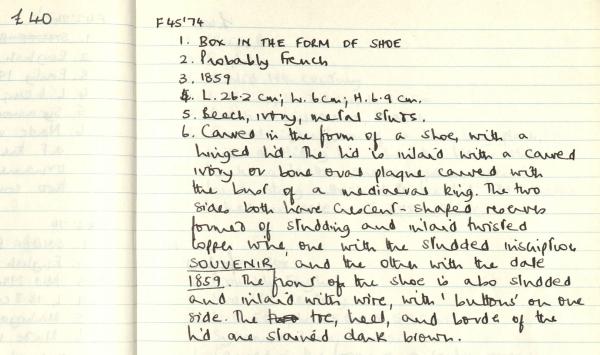 £40
F45'74
1. BOX IN THE FORM OF SHOE
2. Probably French
3. 1859
4. L. 26.2 cm; W. 6cm; H. 6.9 cm.
5. Beech, ivory, metal studs.
6. Carved in the form of a shoe, with a
hinged lid. The lid is inlaid with a carved
ivory or bone oval plaque carved with
the bust of a mediaeval king. The two
sides both have crescent-shaped reserves
formed of studding and inlaid twisted
copper wire, one with the studded inscription
SOUVENIR, and the other with the date
1859. The front of the shoe is also studded
and inlaid with wire, with 'buttons' on one
side. The toe, heel, and border of the
lid are stained dark brown.